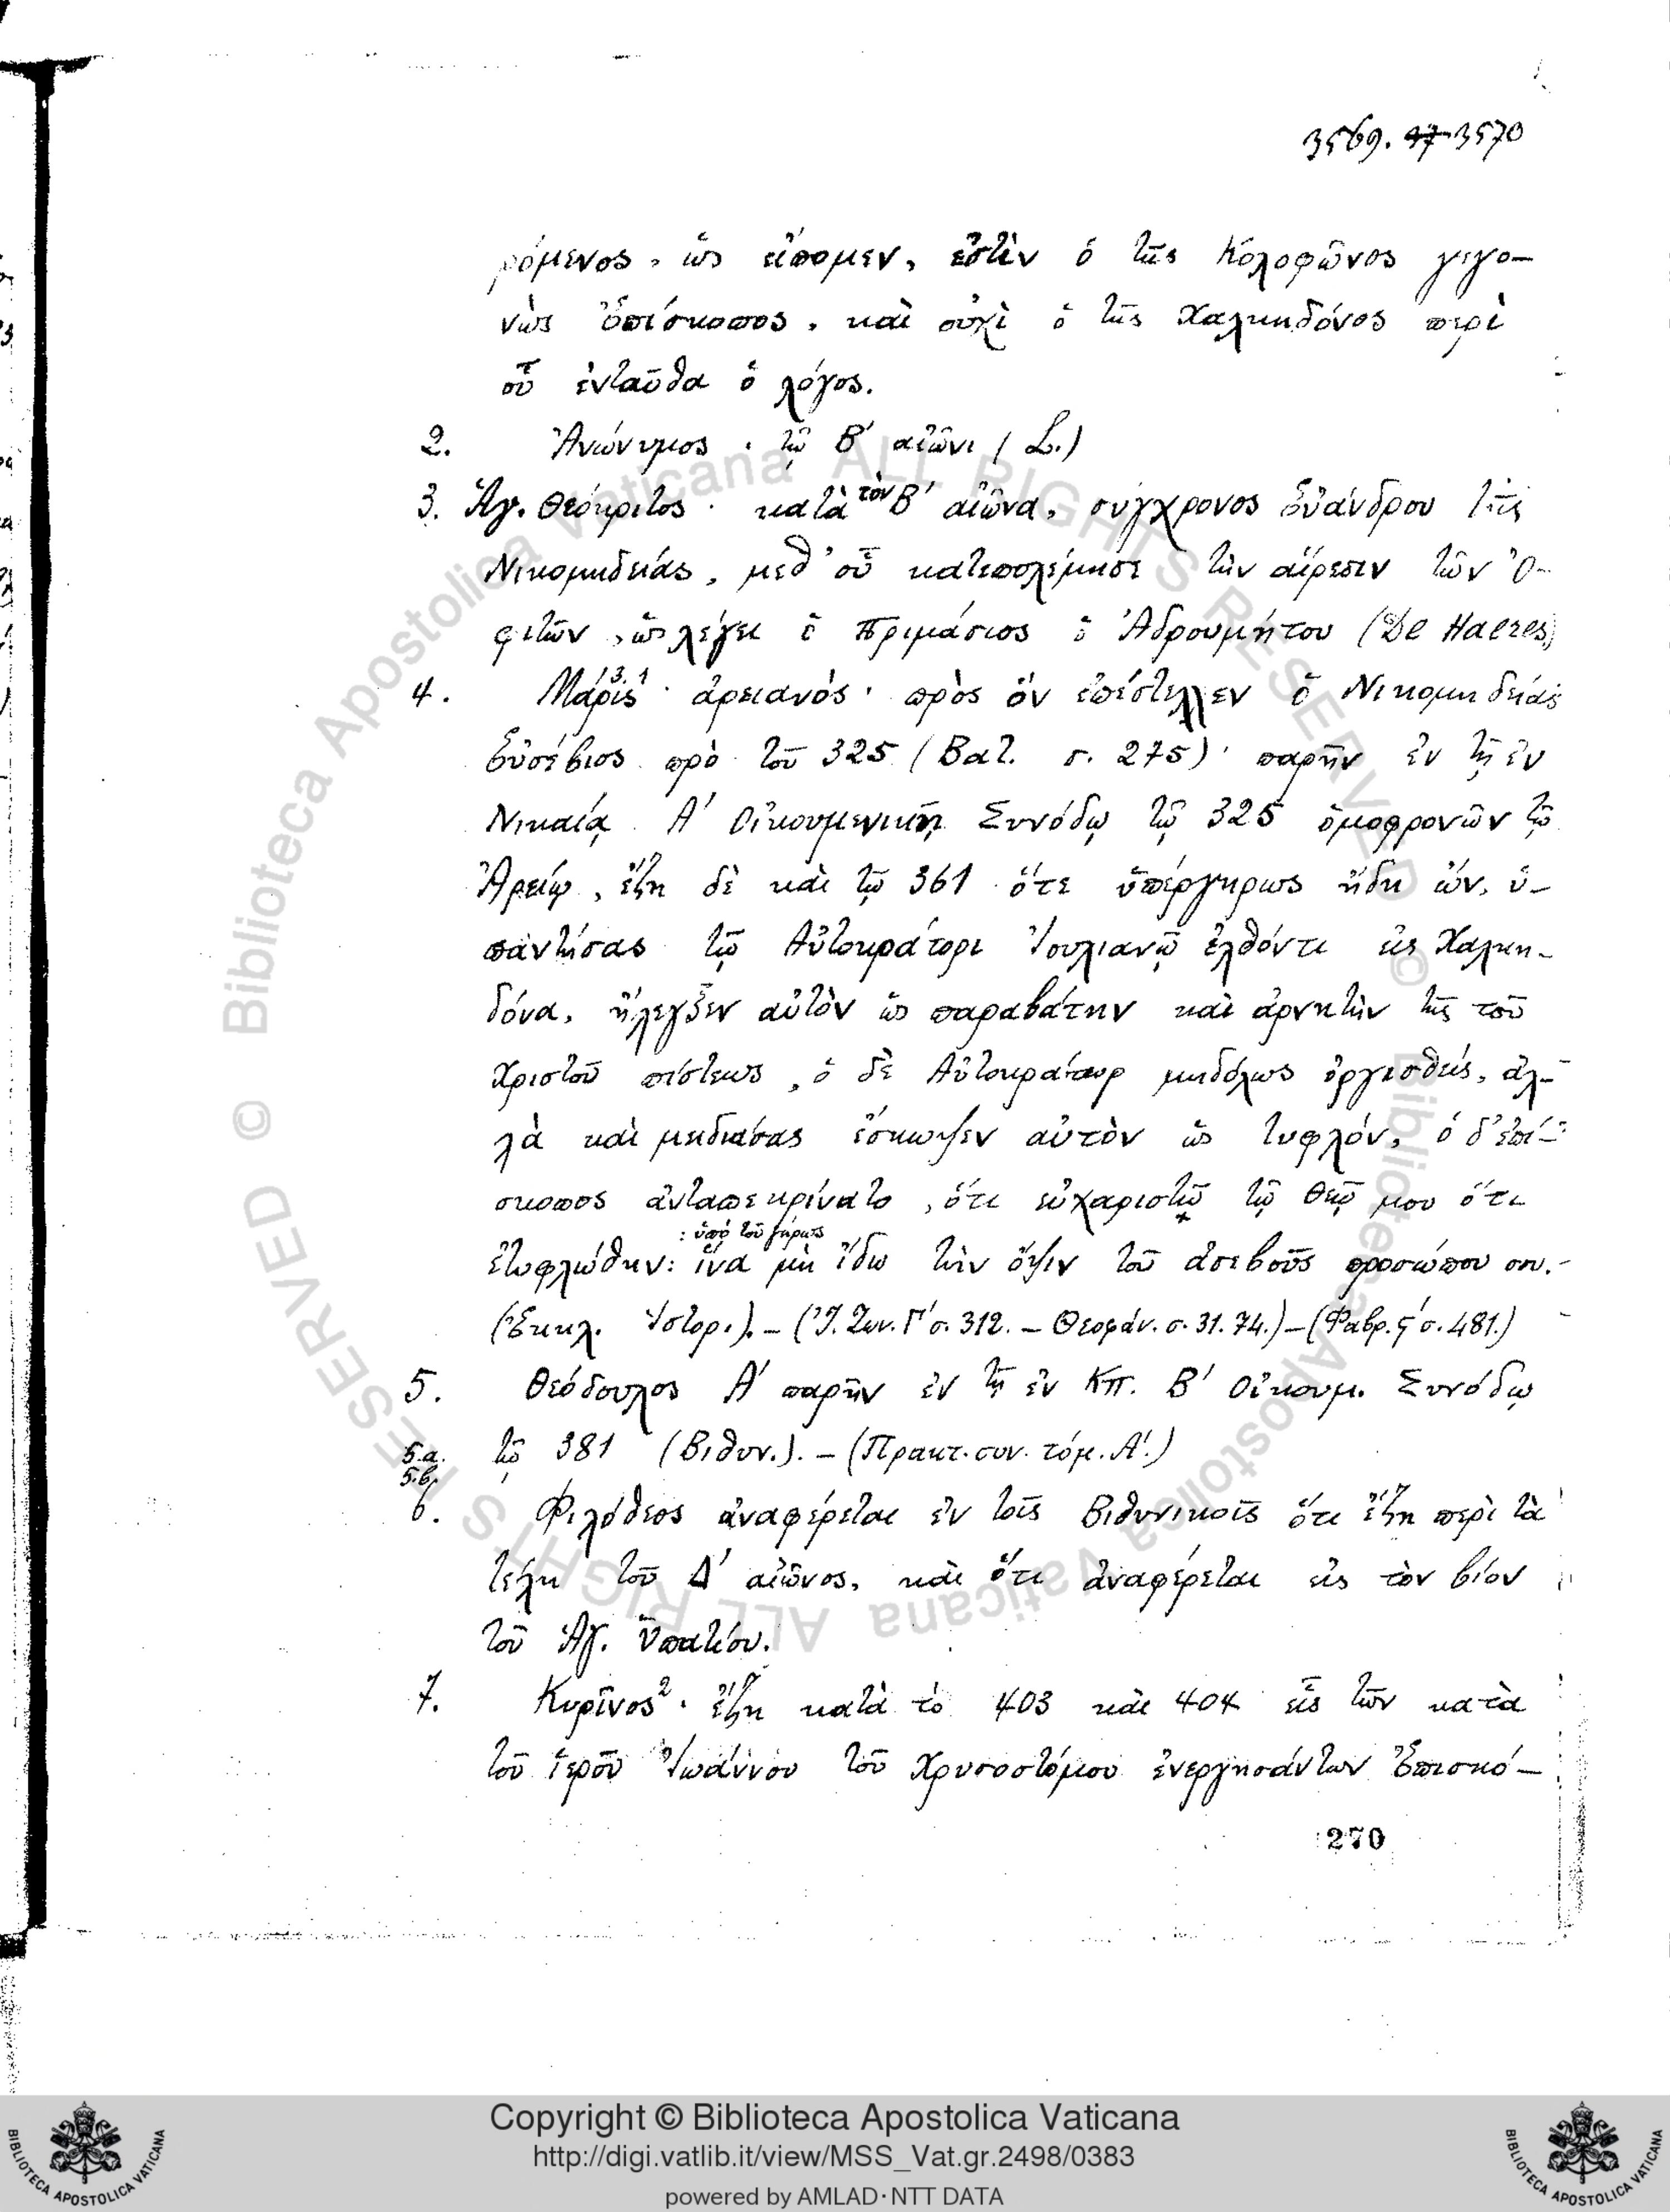 3569. 47 3570
ρόμενος, ὡς εἴπομεν, ἐστὶν ὁ τῆς Κολοφῶνος γεγο-
νὼς Ἐπίσκοπος, καὶ οὐχὶ ὁ τῆς Χαλκηδόνος περὶ
οὗ ἐνταῦθα ὁ λόγος.
2. Ἀνώνυμος · τῷ Β′ αἰῶνι (L.)
3. Ἁγ. Θεόκριτος · κατὰ τὸν Β′ αἰῶνα, σύγχρονος Εὐάνδρου τῆς
Νικομηδείας, μεθ' οὗ κατεπολέμησε τὴν αἵρεσιν τῶν Ὀ-
φιτῶν, ὡς λέγει ὁ Πριμάσιος ὁ Ἀδρουμήτου (De Haeres)
4. Μάρις 3.1 · ἀρειανός · πρὸς ὃν ἐπέστελλεν ὁ Νικομηδείας
Εὐσέβιος πρὸ τοῦ 325 (Βατ. σ. 275) · παρῆν ἐν τῇ ἐν
Νικαίᾳ Α′ Οἰκουμενικῇ Συνόδῳ τῷ 325 ὁμοφρονῶν τῷ
Ἀρείῳ, ἔζη δὲ καὶ τῷ 361 ὅτε ὑπέργηρως ἤδη ὢν, ὑ-
παντήσας τῷ Αὐτοκράτορι Ἰουλιανῷ ἐλθόντι εἰς Χαλκη-
δόνα, ἤλεγξεν αὐτὸν ὡς παραβάτην καὶ ἀρνητὴν τῆς τοῦ
Χριστοῦ πίστεως, ὁ δὲ Αὐτοκράτωρ μηδόλως ὀργισθείς, ἀλ-
λὰ καὶ μειδιάσας ἔσκωψεν αὐτὸν ὡς τυφλόν, ὁ δ' ἐπί-
σκοπος ἀνταπεκρίνατο, ὅτι εὐχαριστῶ τῷ Θεῷ μου ὅτι
: ὑπὸ τοῦ γήρως
ἐτυφλώθην: ἵνα μὴ ἴδω τὴν ὄψιν τοῦ ἀσεβοῦς προσώπου σου.-
(Ἐκκλ. Ἱστορ.). – (Ἰ. Ζων. Γ′ σ. 312. – Θεοφάν. σ. 31. 74.) – (Φαβρ. ς′ σ. 481.)
5. Θεόδουλος Α′ παρῆν ἐν τῇ ἐν Κπ. Β′ Οἰκουμ. Συνόδῳ
5.α. τῷ 381 (Βιθυν.). – (Πρακτ. συν. τόμ. Α′.)
5.β.
6. Φιλόθεος ἀναφέρεται ἐν τοῖς Βιθυνικοῖς ὅτι ἔζη περὶ τὰ
τέλη τοῦ Δ′ αἰῶνος, καὶ ὅτι ἀναφέρεται εἰς τὸν βίον
τοῦ Ἁγ. Ὑπατίου.
7. Κυρῖνος 2 · ἔζη κατὰ τὸ 403 καὶ 404 εἷς τῶν κατὰ
τοῦ ἱεροῦ Ἰωάννου τοῦ Χρυσοστόμου ἐνεργησάντων Ἐπισκό-
270
© Biblioteca Apostolica Vaticana ALL RIGHTS RESERVED © Biblioteca Apostolica Vaticana ALL RIGHTS RESERVED
Copyright © Biblioteca Apostolica Vaticana
http://digi.vatlib.it/view/MSS_Vat.gr.2498/0383
powered by AMLAD·NTT DATA
BIBLIOTECA APOSTOLICA VATICANA
BIBLIOTECA APOSTOLICA VATICANA